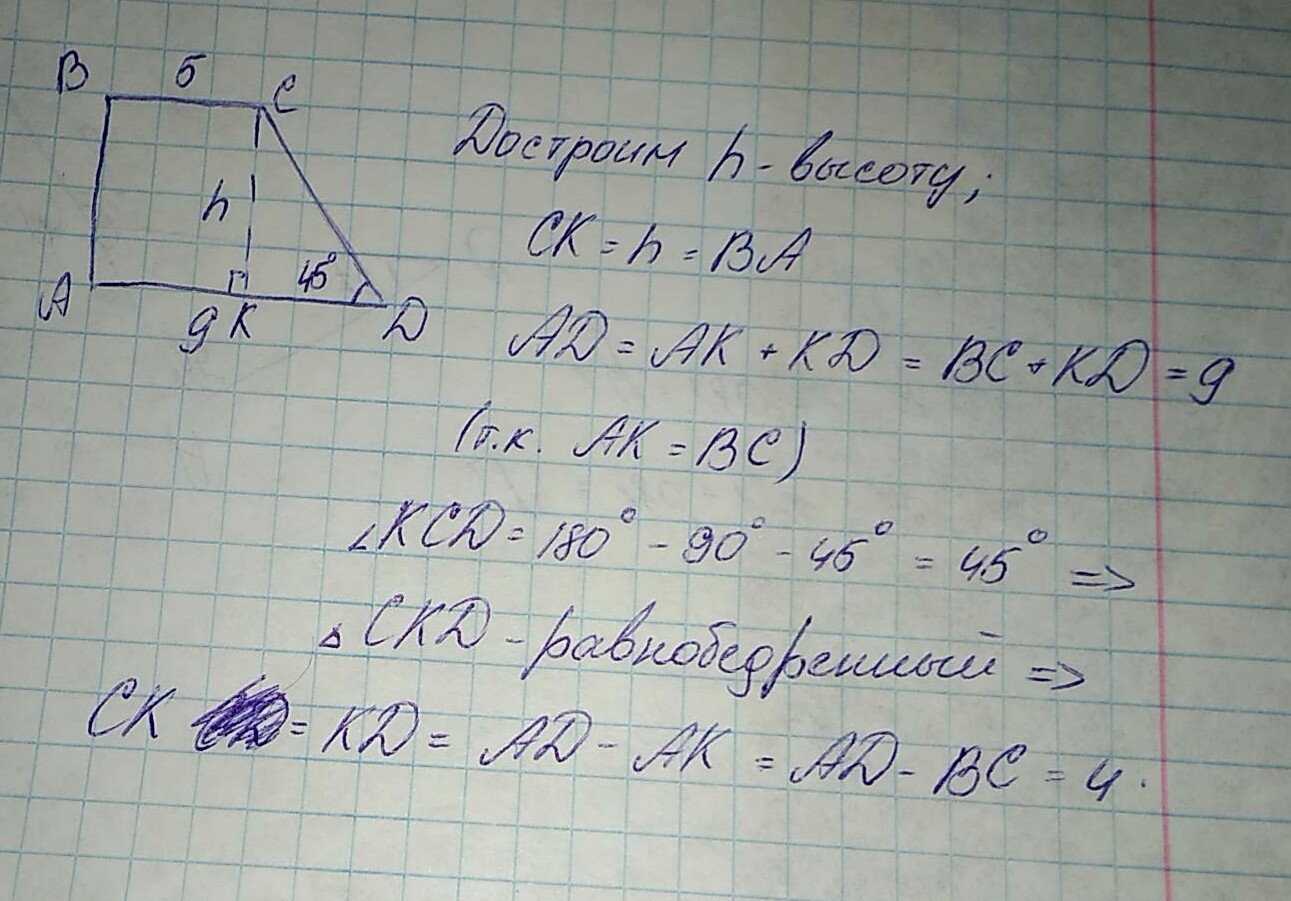 B 5 C
h
45°
A K D
9
Достроим h - высоту;
CK = h = BA
AD = AK + KD = BC + KD = 9
(т.к. AK = BC)
∠KCD = 180° - 90° - 45° = 45° =>
△ CKD - равнобедренный =>
CK = KD = AD - AK = AD - BC = 4.